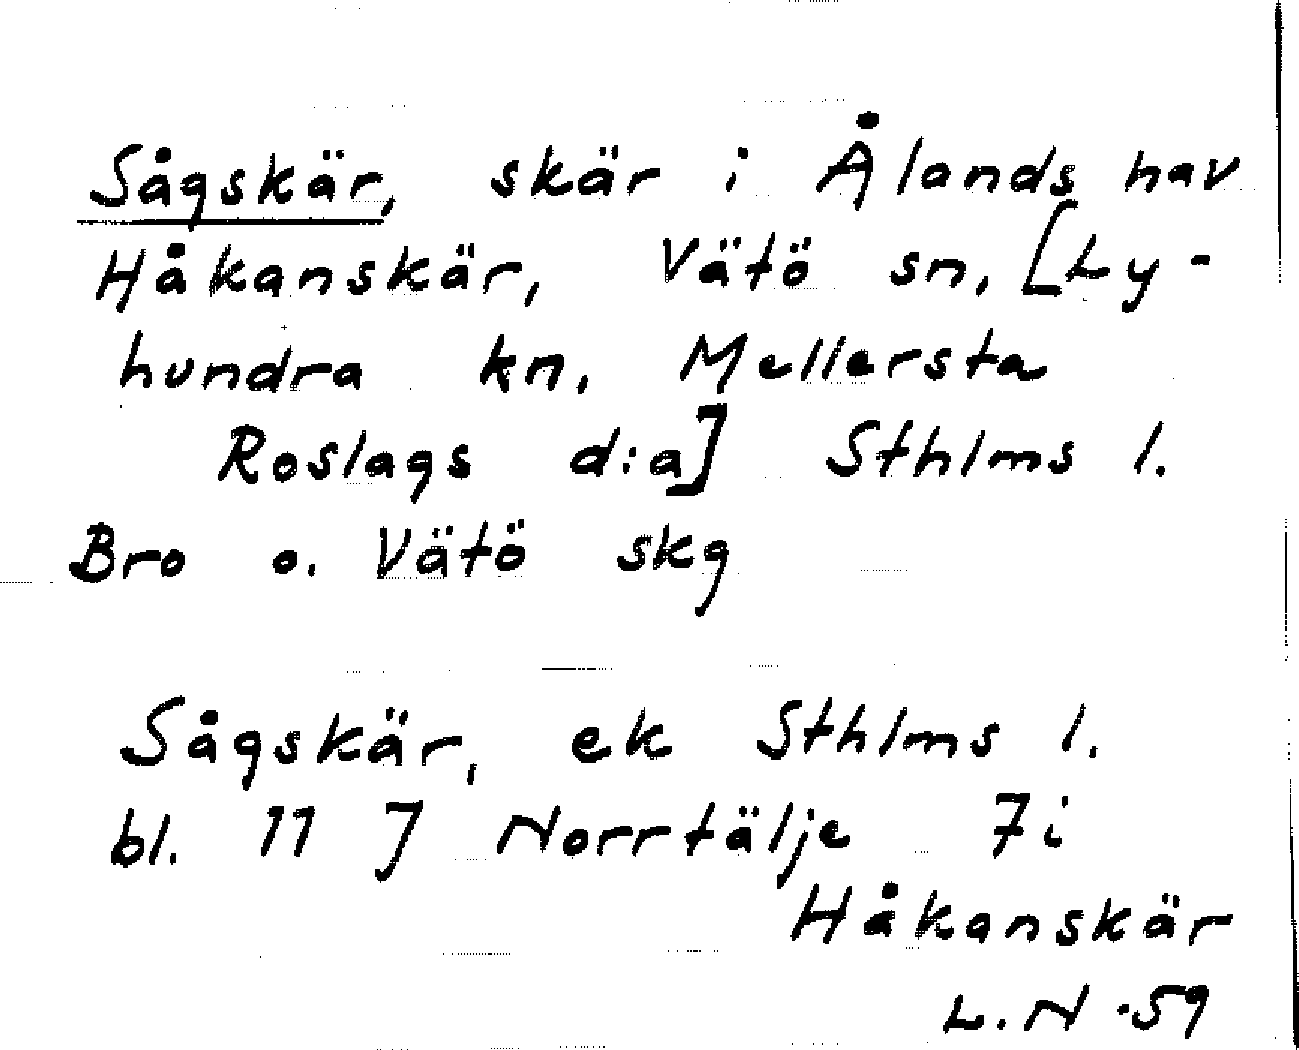 Sågskär, skär i Ålands hav
Håkanskär, Vätö sn, [Ly-
hundra kn, Mellersta
Roslags d:a] Sthlms l.
Bro o. Vätö skg
Sågskär, ek Sthlms l.
bl. 11 J Norrtälje 7i
Håkanskär
L. N -59